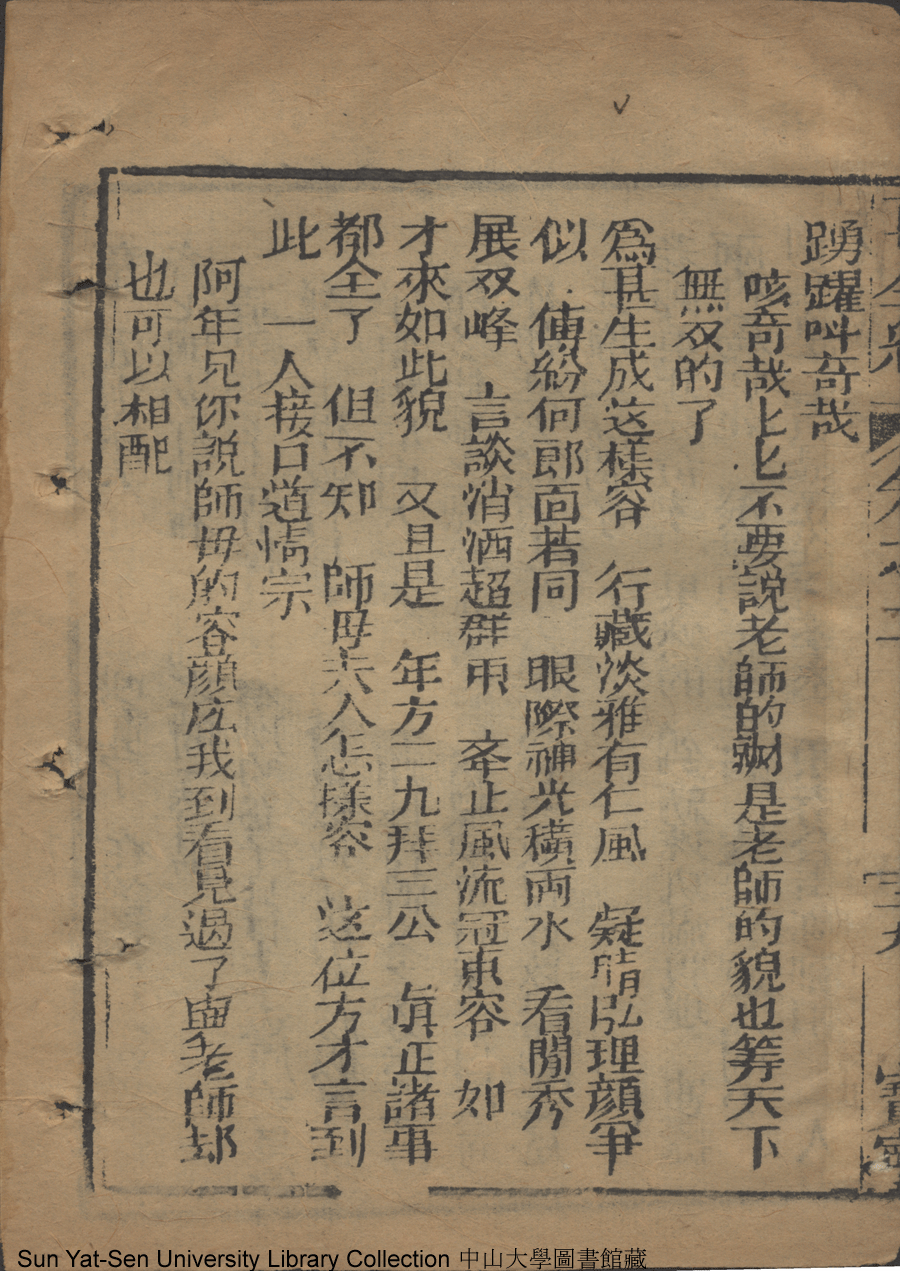 踴躍叫奇哉
咳奇哉匕匕不要說老師的才是老師的貌也筭天下
無双的了
爲甚生成这樣容 行藏淡雅有仁風 疑睛弘理顔爭
似 傅紛何郎面若同 眼際神光橫両水 看開秀
展双峰 言談消洒超群用 夆止風流冠東容 如
才來如此貌 又且是 年方二九拜三公 眞正諸事
都全了 但不知 師母夫人怎樣容 这位方才言到
此 一人接口道情宗
阿年兄你說師毋的容顔庅我到看見過了與老師却
也可以相配
Sun Yat-Sen University Library Collection 中山大學圖書館藏